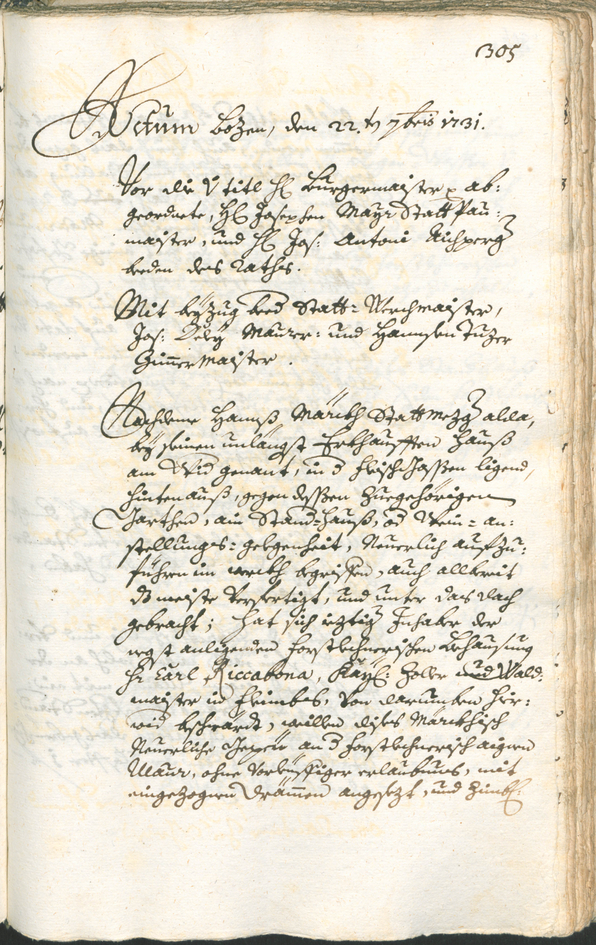 305
Actum Bozen, den 22.t 7bris 1731.
Vor die titl H: Burgermaister ab:
geordnete, H: Josephen Mayr Statt Pau:
maister, und H: Jos: Antoni Aichperg
beeden des Raths.
Mit beyzug beed Statt-Werchmaister,
Jos: Maurer: und Hannsen Tuzer
Zimmermaister.
Nachdeme Hannß Märckh Stattmezg alda,
bey seinen unlängst Erkhaufften Hauß
am genant, in d Fleischgassen ligend,
hinten auß, gegen dessen Zuegehörigen
Garthen, ain Stand-Hauß, od Wein-an:
stellungs-gelegenheit, Neuerlich aufzu:
führen im werckh begriffen, auch allbereit
ds meiste Verfertigt, und unter das Dach
gebracht; Hat sich ieztig Inhaber der
negst anligenden Forstlechnerischen Behausung
Hr Carl Riccabona, Kayl: Zoler und Wald:
maister in Primbes, von darumben hier:
wid beschwärdt, weillen dises Märckhisch
Neuerliche Gepeu an d Forstlechnerisch aignen
Maur, ohne Vorleiffiger erlaubnus, mit
eingezognen Drämen angesezt, und